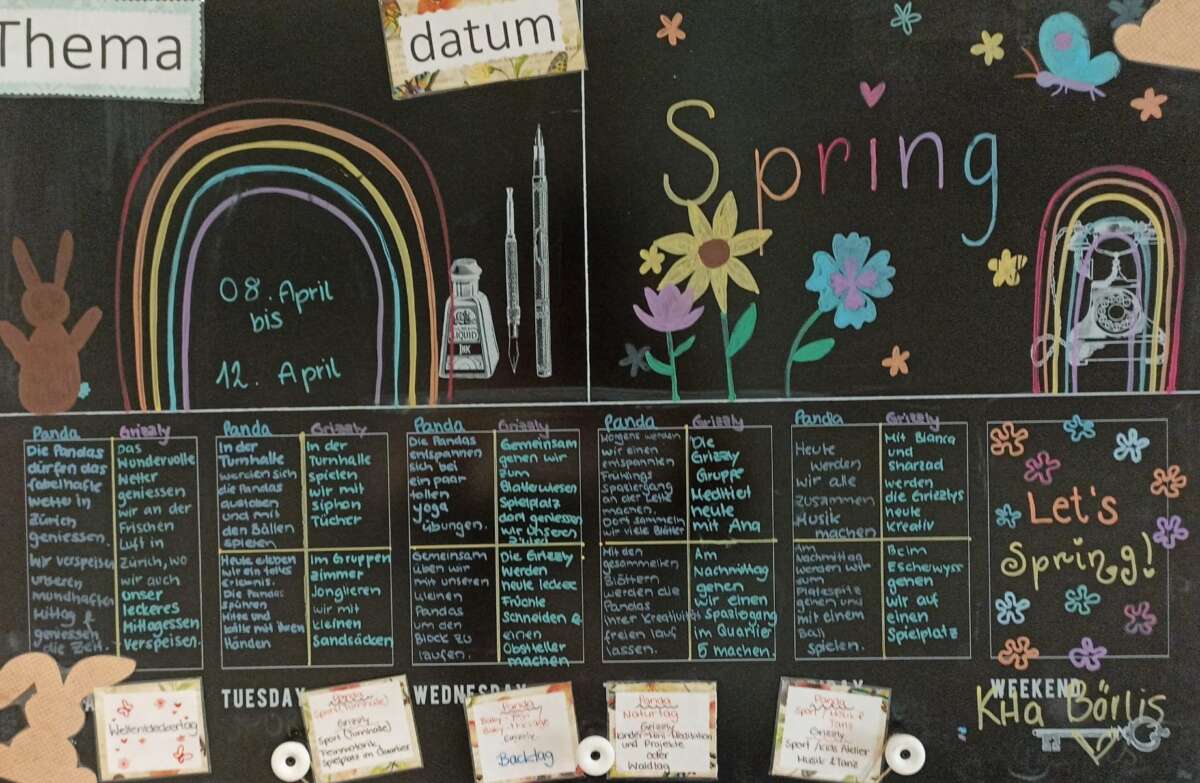 Thema
datum
Spring
08. April
bis
12. April
Panda
Die Pandas
dürfen das
fabelhafte
Wetter in
Zürich
geniessen.
Wir verspeisen
unseren
mundhaften
Mittag &
geniessen
die Zeit.
Grizzly
Das
Wundervolle
Wetter
geniessen
wir an der
Frischen
Luft in
Zürich, wo
wir auch
unser
leckeres
Mittagessen
Verspeisen.
Panda
In der
Turnhalle
werden sich
die Pandas
austoben
und mit
den Bällen
spielen
Heute erleben
wir ein tolles
Erlebnis.
Die Pandas
spühren
Hitze und
kälte mit ihren
Händen
Grizzly
In der
Turnhalle
spielen
wir mit
siphon
Tücher
Im Gruppen
zimmer
Jonglieren
wir mit
kleinen
Sandsäcken
Panda
Die Pandas
entspannen
sich bei
ein paar
tollen
yoga
übungen.
Gemeinsam
üben wir
mit unseren
kleinen
Pandas
um den
Block zu
laufen.
Grizzly
Gemeinsam
gehen wir
zum
Blatterwiesen
Spielplatz
dort geniessen
wir unseren
Die Grizzly
Werden
heute lecker
Früchte
Schneiden &
einen
Obstteller
machen
Panda
Morgens werden
wir einen
entspannten
Frühlings
Spaziergang
an der
machen.
Dort sammeln
wir viele Blätter
Mit den
gesammelten
Blättern
werden die
Pandas
ihrer Kreativität
freien lauf
lassen.
Grizzly
Die
Grizzly
Gruppe
Meditiet
heute
mit Ana
Am
Nachmittag
gehen
wir einen
Spaziegang
im Quartier
5 machen.
Panda
Heute
werden
wir alle
zusammen
Musik
machen
Am
Nachmittag
werden wir
zum
Platzspitz
gehen und
mit einem
Ball
spielen.
Grizzly
Mit Bianca
und
sharzad
werden
die Grizzlys
heute
kreativ
Beim
Escherwyss
gehen
wir auf
einen
Spielplatz
Let's
Spring!
TUESDAY
WEDNESDAY
WEEKEND
Kita Börlis
Weltentdeckertag
Panda
Sport (Turnhalle)
Grizzly
Sport (Turnhalle)
Feinmotorik
Spielplatz im Quartier
Panda
Baby-Yoga
Grizzly
Backtag
Panda
Naturtag
Grizzly
Kinder-Yoga-Meditation
und Projekte
oder
Waldtag
Panda
Sport / Musik
Tanz
Grizzly
Sport / Kids Atelier
Musik & Tanz